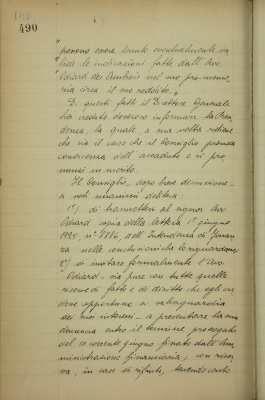 490
"possono essere tenute eventualmente va
"lide le indicazioni fatte dall'Avv.
"Odiard des Ambrois nel suo pro-memo,
ria circa il suo reddito."
Di questi fatti il Direttore Generale
ha creduto doveroso informare la Presi
denza, la quale a sua volta ritiene
che sia il caso che il Consiglio prenda
conoscenza dell'accaduto e si pro
nunci in merito.
Il Consiglio, dopo breve discussione
a voti unanimi delibera:
1°) di trasmettere al signor Avv.
Odiard copia della lettera 1° giugno
1935, n° 7886, dell'Intendenza di Finan
za nelle conclusioni che lo riguardano,
2°) di invitare formalmente l'Avv.
Odiard - sia pure con tutte quelle
riserve di fatto e di diritto che egli cre
desse opportuno a salvaguardia
dei suoi interessi - a presentare la sua
denuncia entro il termine prorogato
del 20 corrente giugno fissato dall'Am
ministrazione finanziaria; con riser
va, in caso di rifiuto, tenendo conto